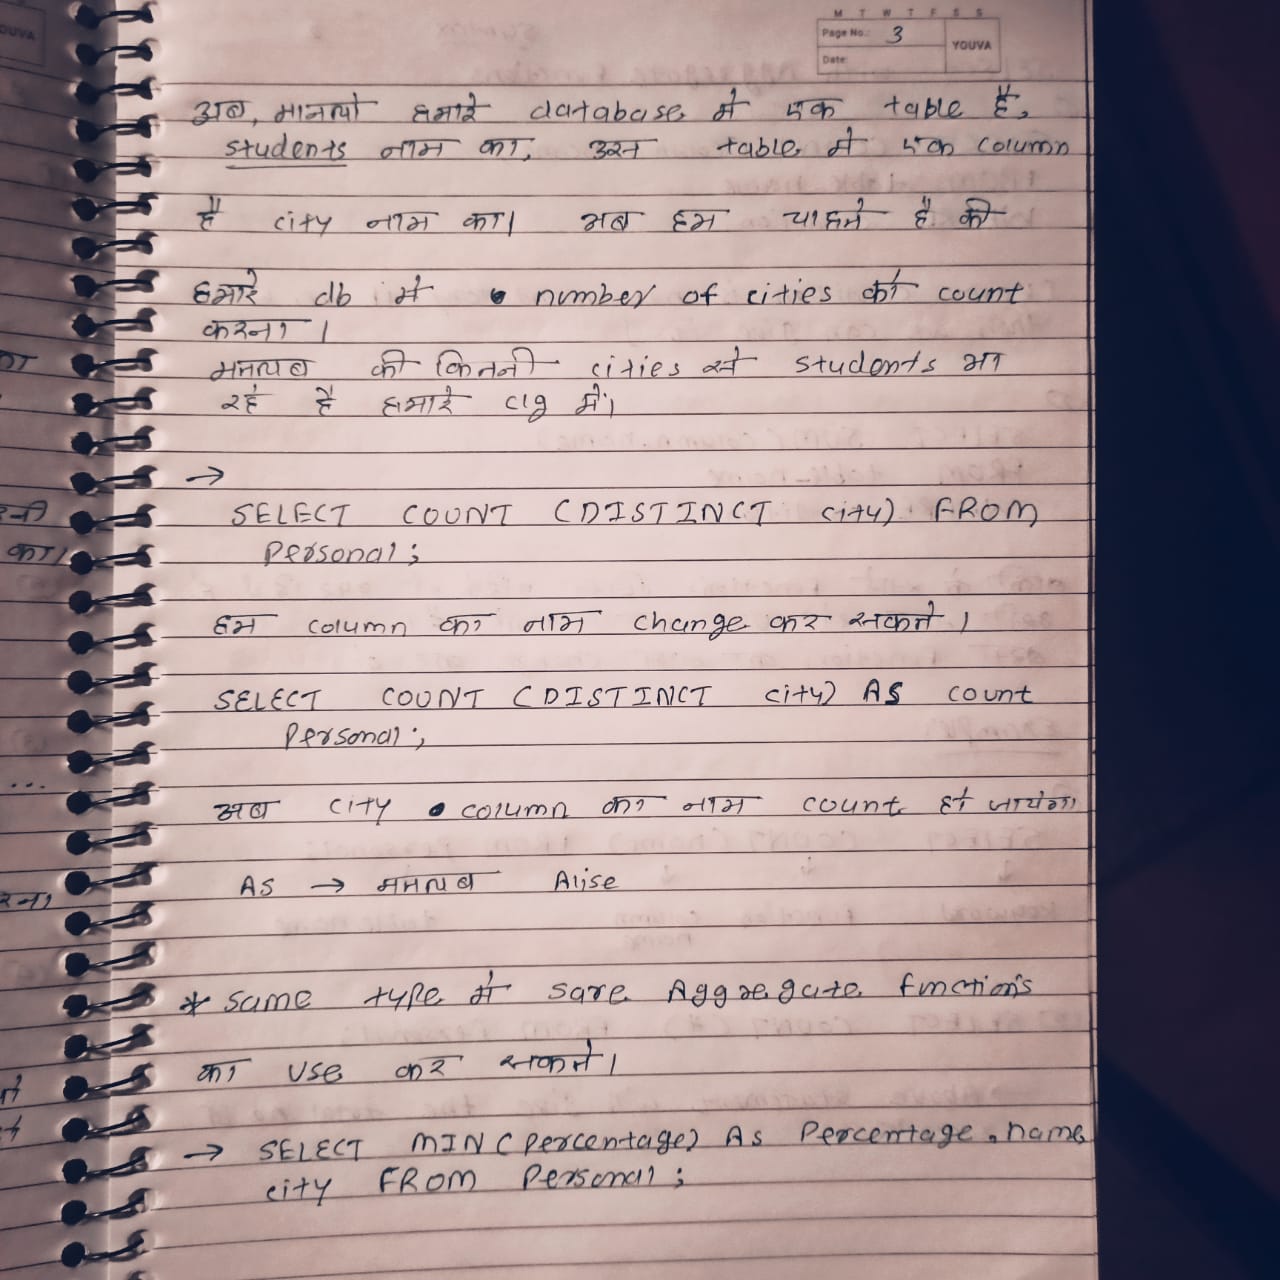 M T W T F S S
Page No.: 3
YOUVA
Date:
अब, मानलो हमारे database में एक table है,
students नाम का, उस table में एक column
है city नाम का। अब हम चाहते है की
हमारे db में number of cities को count
करना।
मतलब की कितनी cities से students आ
रहे है हमारे clg में।
→
SELECT COUNT (DISTINCT city) FROM
Personal;
हम column का नाम change कर सकते।
SELECT COUNT (DISTINCT city) AS count
Personal;
अब city column का नाम count हो जायेगा
As → मतलब Alise
* same type में sare Aggregate functions
का use कर सकते।
→ SELECT MIN(percentage) As Percentage, name
city FROM Personal;